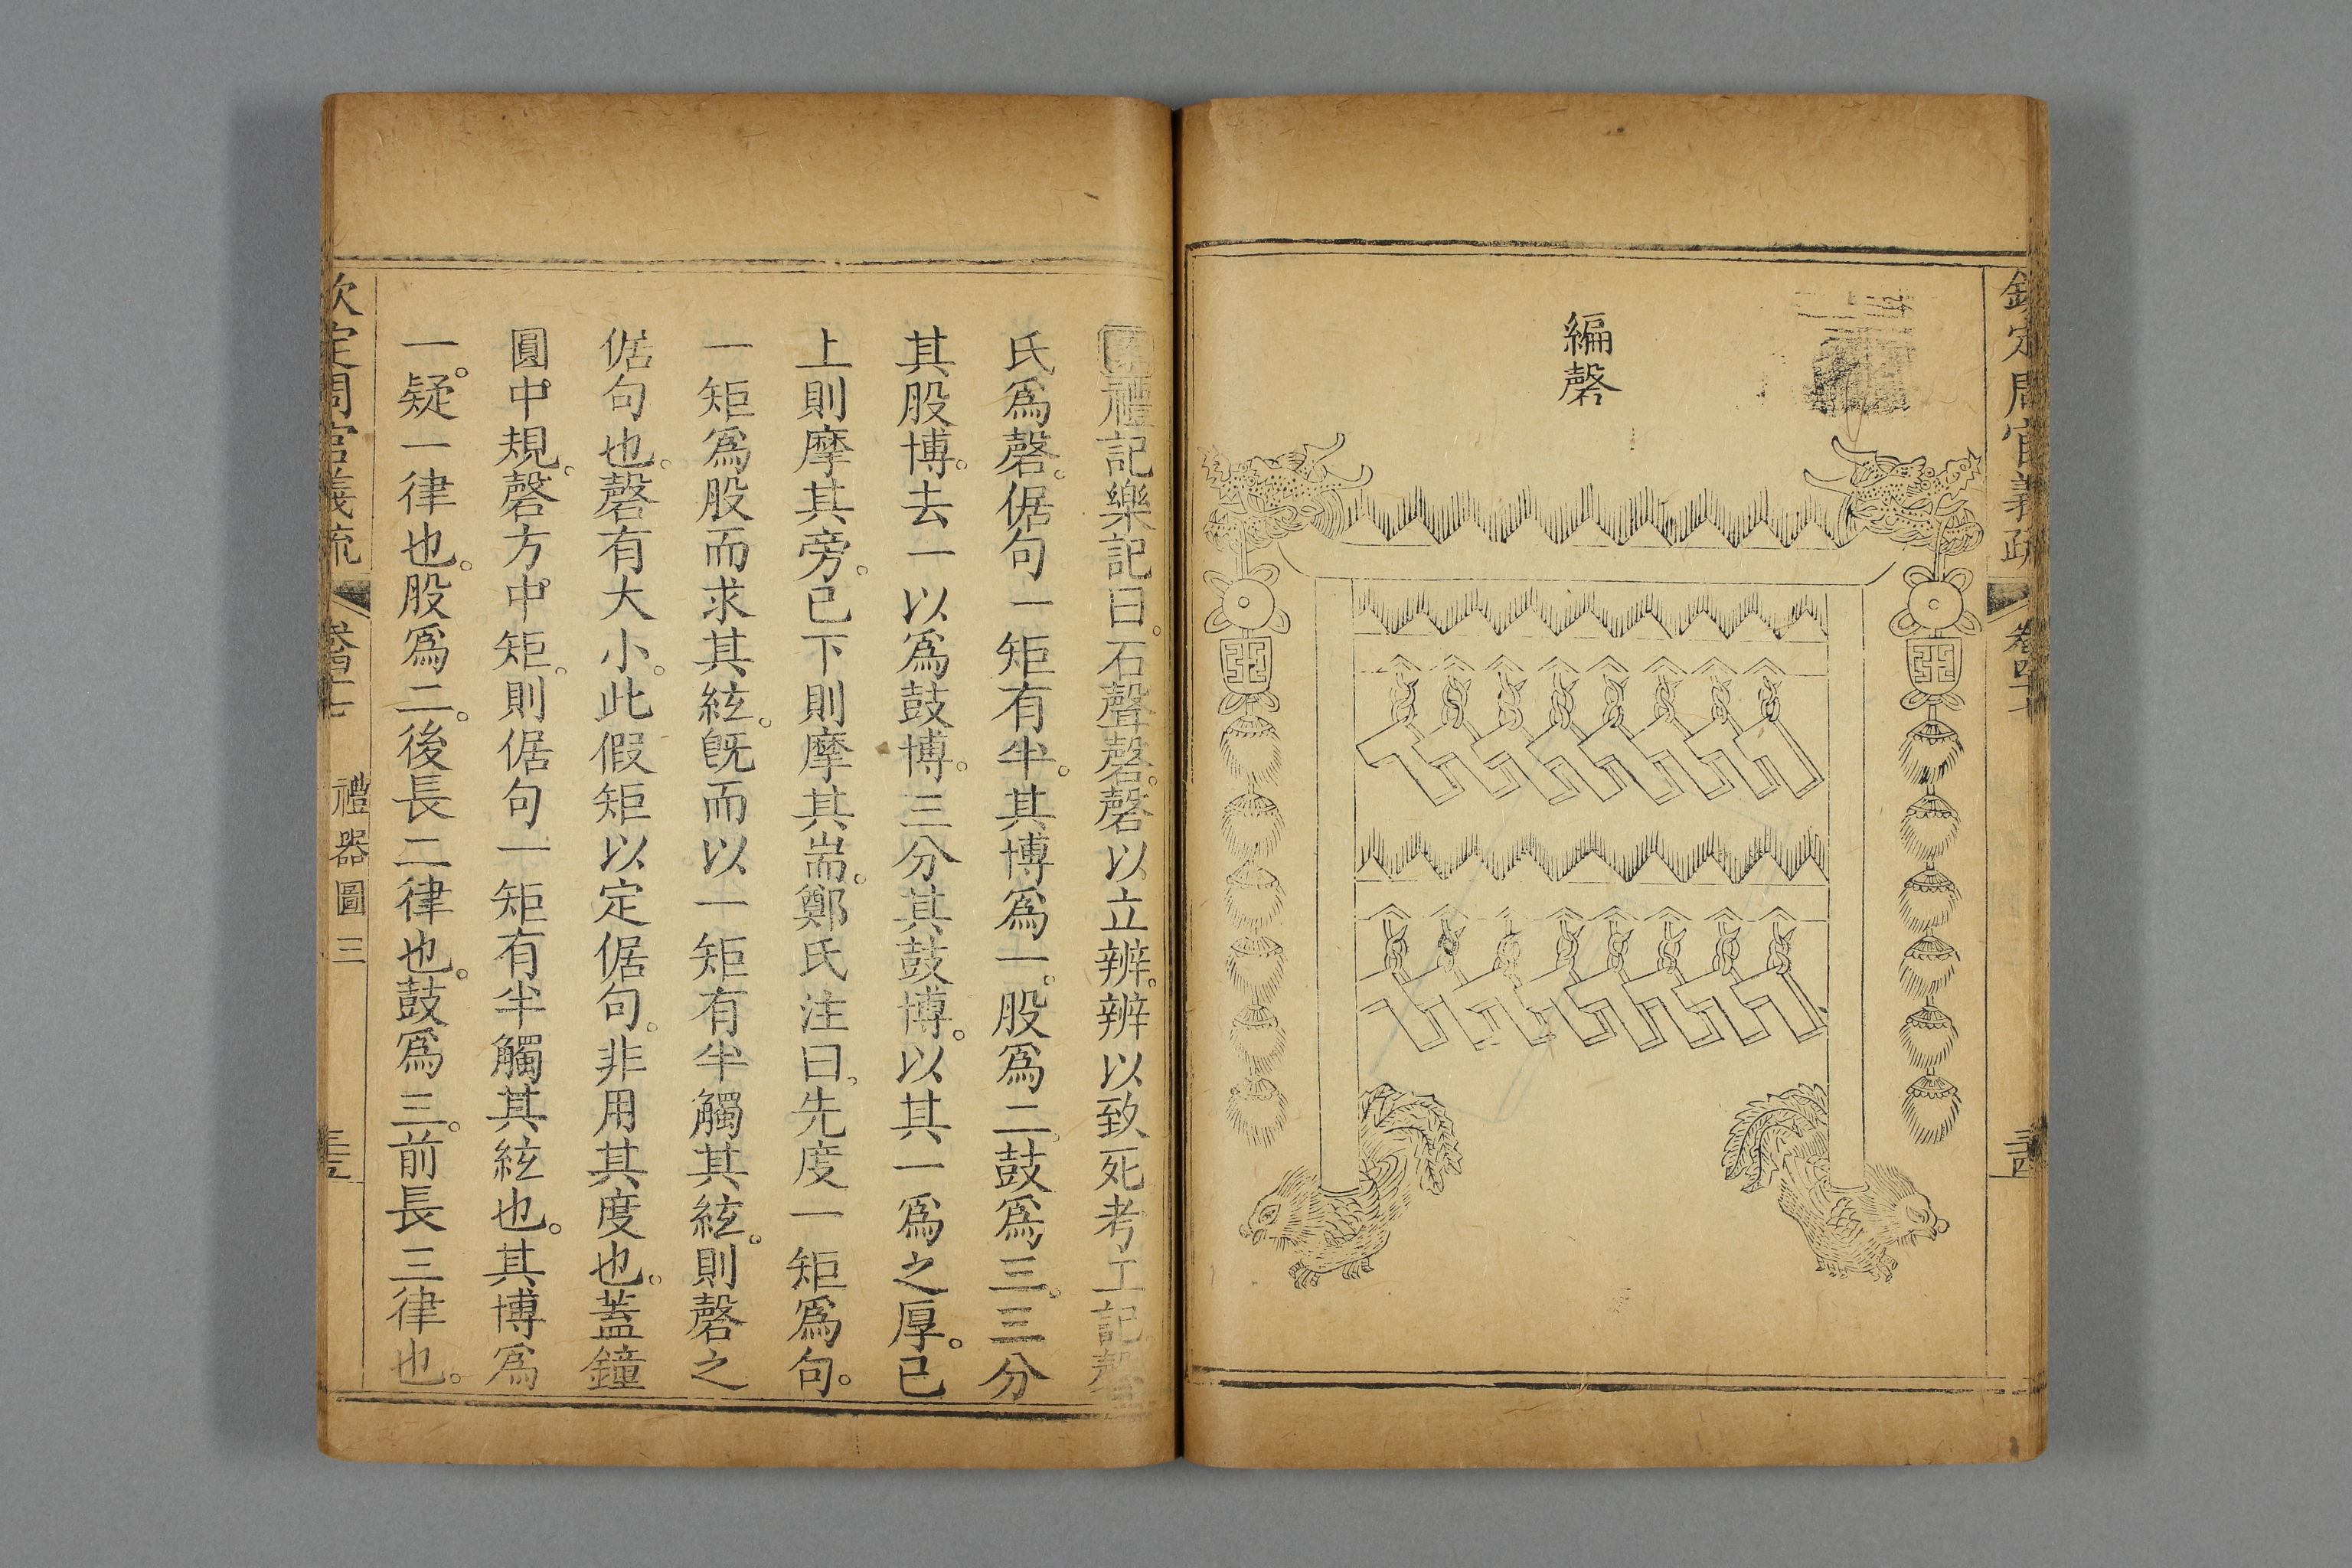 欽定周官義疏
卷四十
編磬
禮記樂記曰。石聲磬。磬以立辨。辨以致死考工記磬
氏爲磬。倨句一矩有半。其博爲一。股爲二。鼓爲三。三分
其股博。去一以爲鼓博。三分其鼓博。以其一爲之厚。已
上則摩其旁。已下則摩其耑。鄭氏注曰。先度一矩爲句。
一矩爲股而求其絃。旣而以一矩有半觸其絃。則磬之
倨句也。磬有大小。此假矩以定倨句。非用其度也。蓋鐘
圓中規。磬方中矩。則倨句一矩有半觸其絃也。其博爲
一。疑一律也。股爲二。後長二律也。鼓爲三。前長三律也。
欽定周官義疏
禮器圖三